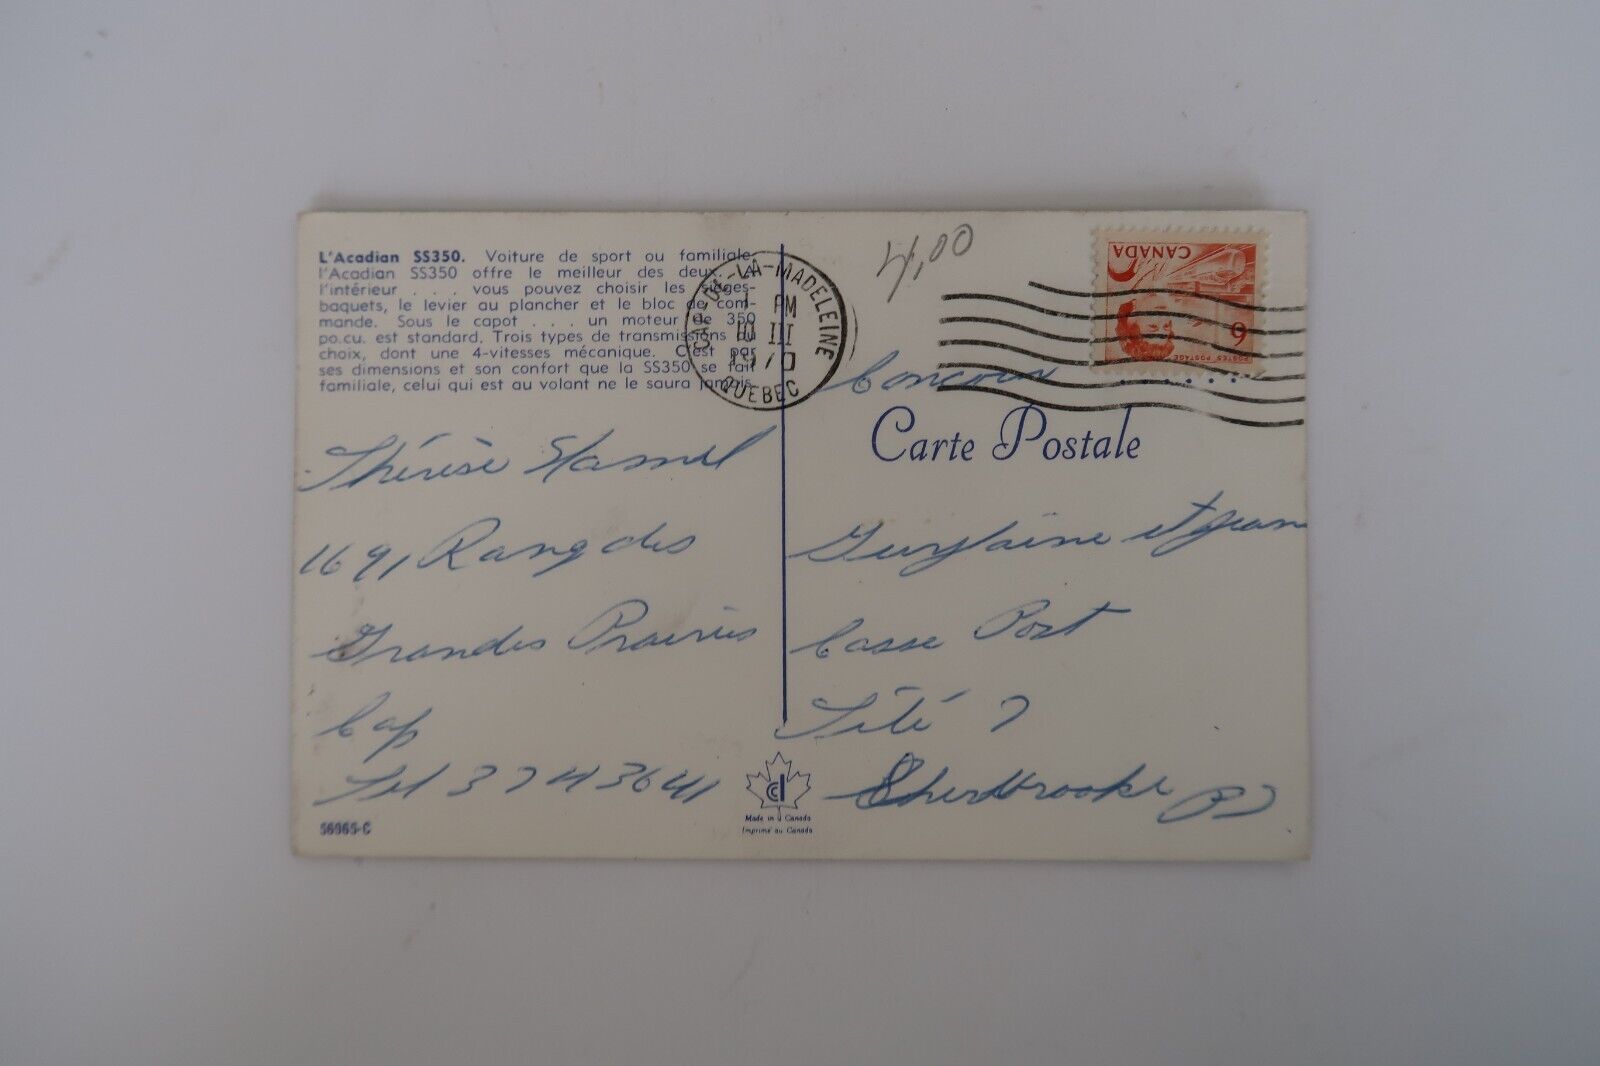 L'Acadian SS350. Voiture de sport ou familiale
l'Acadian SS350 offre le meilleur des deux. A
l'intérieur . . . vous pouvez choisir les sièges-
baquets, le levier au plancher et le bloc de com-
mande. Sous le capot . . . un moteur de 350
po.cu. est standard. Trois types de transmissions au
choix, dont une 4-vitesses mécanique. C'est par
ses dimensions et son confort que la SS350 se fait
familiale, celui qui est au volant ne le saura jamais.
Thérèse Hamel
1691 Rang des
Grandes Prairies
Cap
Tel 3743641
56965-C
CAP-DE-LA-MADELEINE
1 PM
10 III
1970
QUEBEC
4,00
CANADA
6
POSTES POSTAGE
Concour
Carte Postale
Guylaine et Jean
Casse Post
Sité 7
Sherbrooke PQ
Made in Canada
Imprimé au Canada